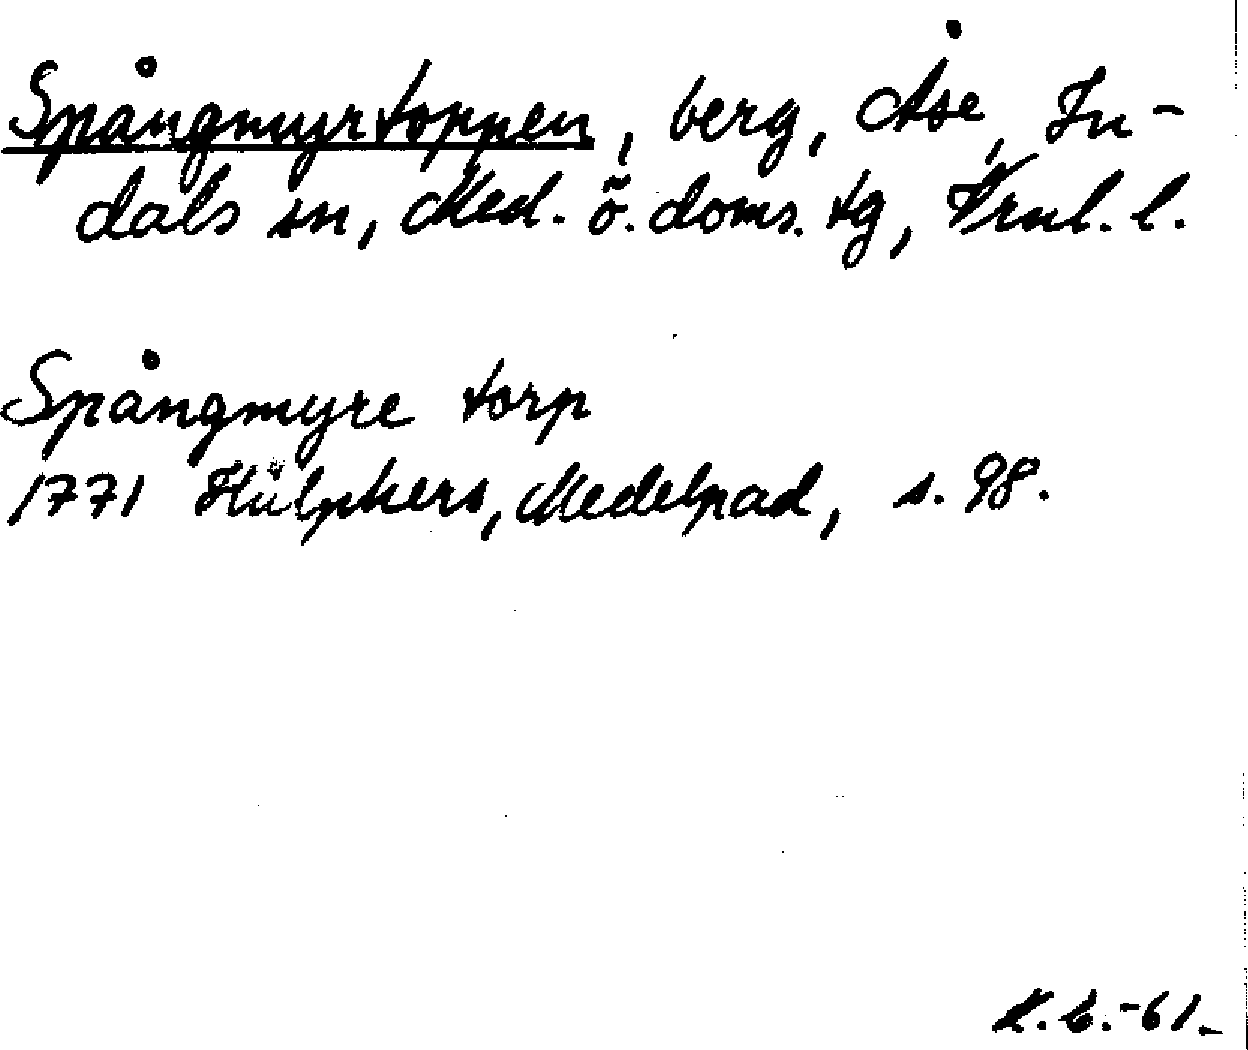 Spångmyrtoppen, berg, Åse, In-
dals sn, Med. ö. doms. tg, Vrnl. l.
Spångmyre torp
1771 Hülphers, Medelpad, s. 98.
K.E.-61.-